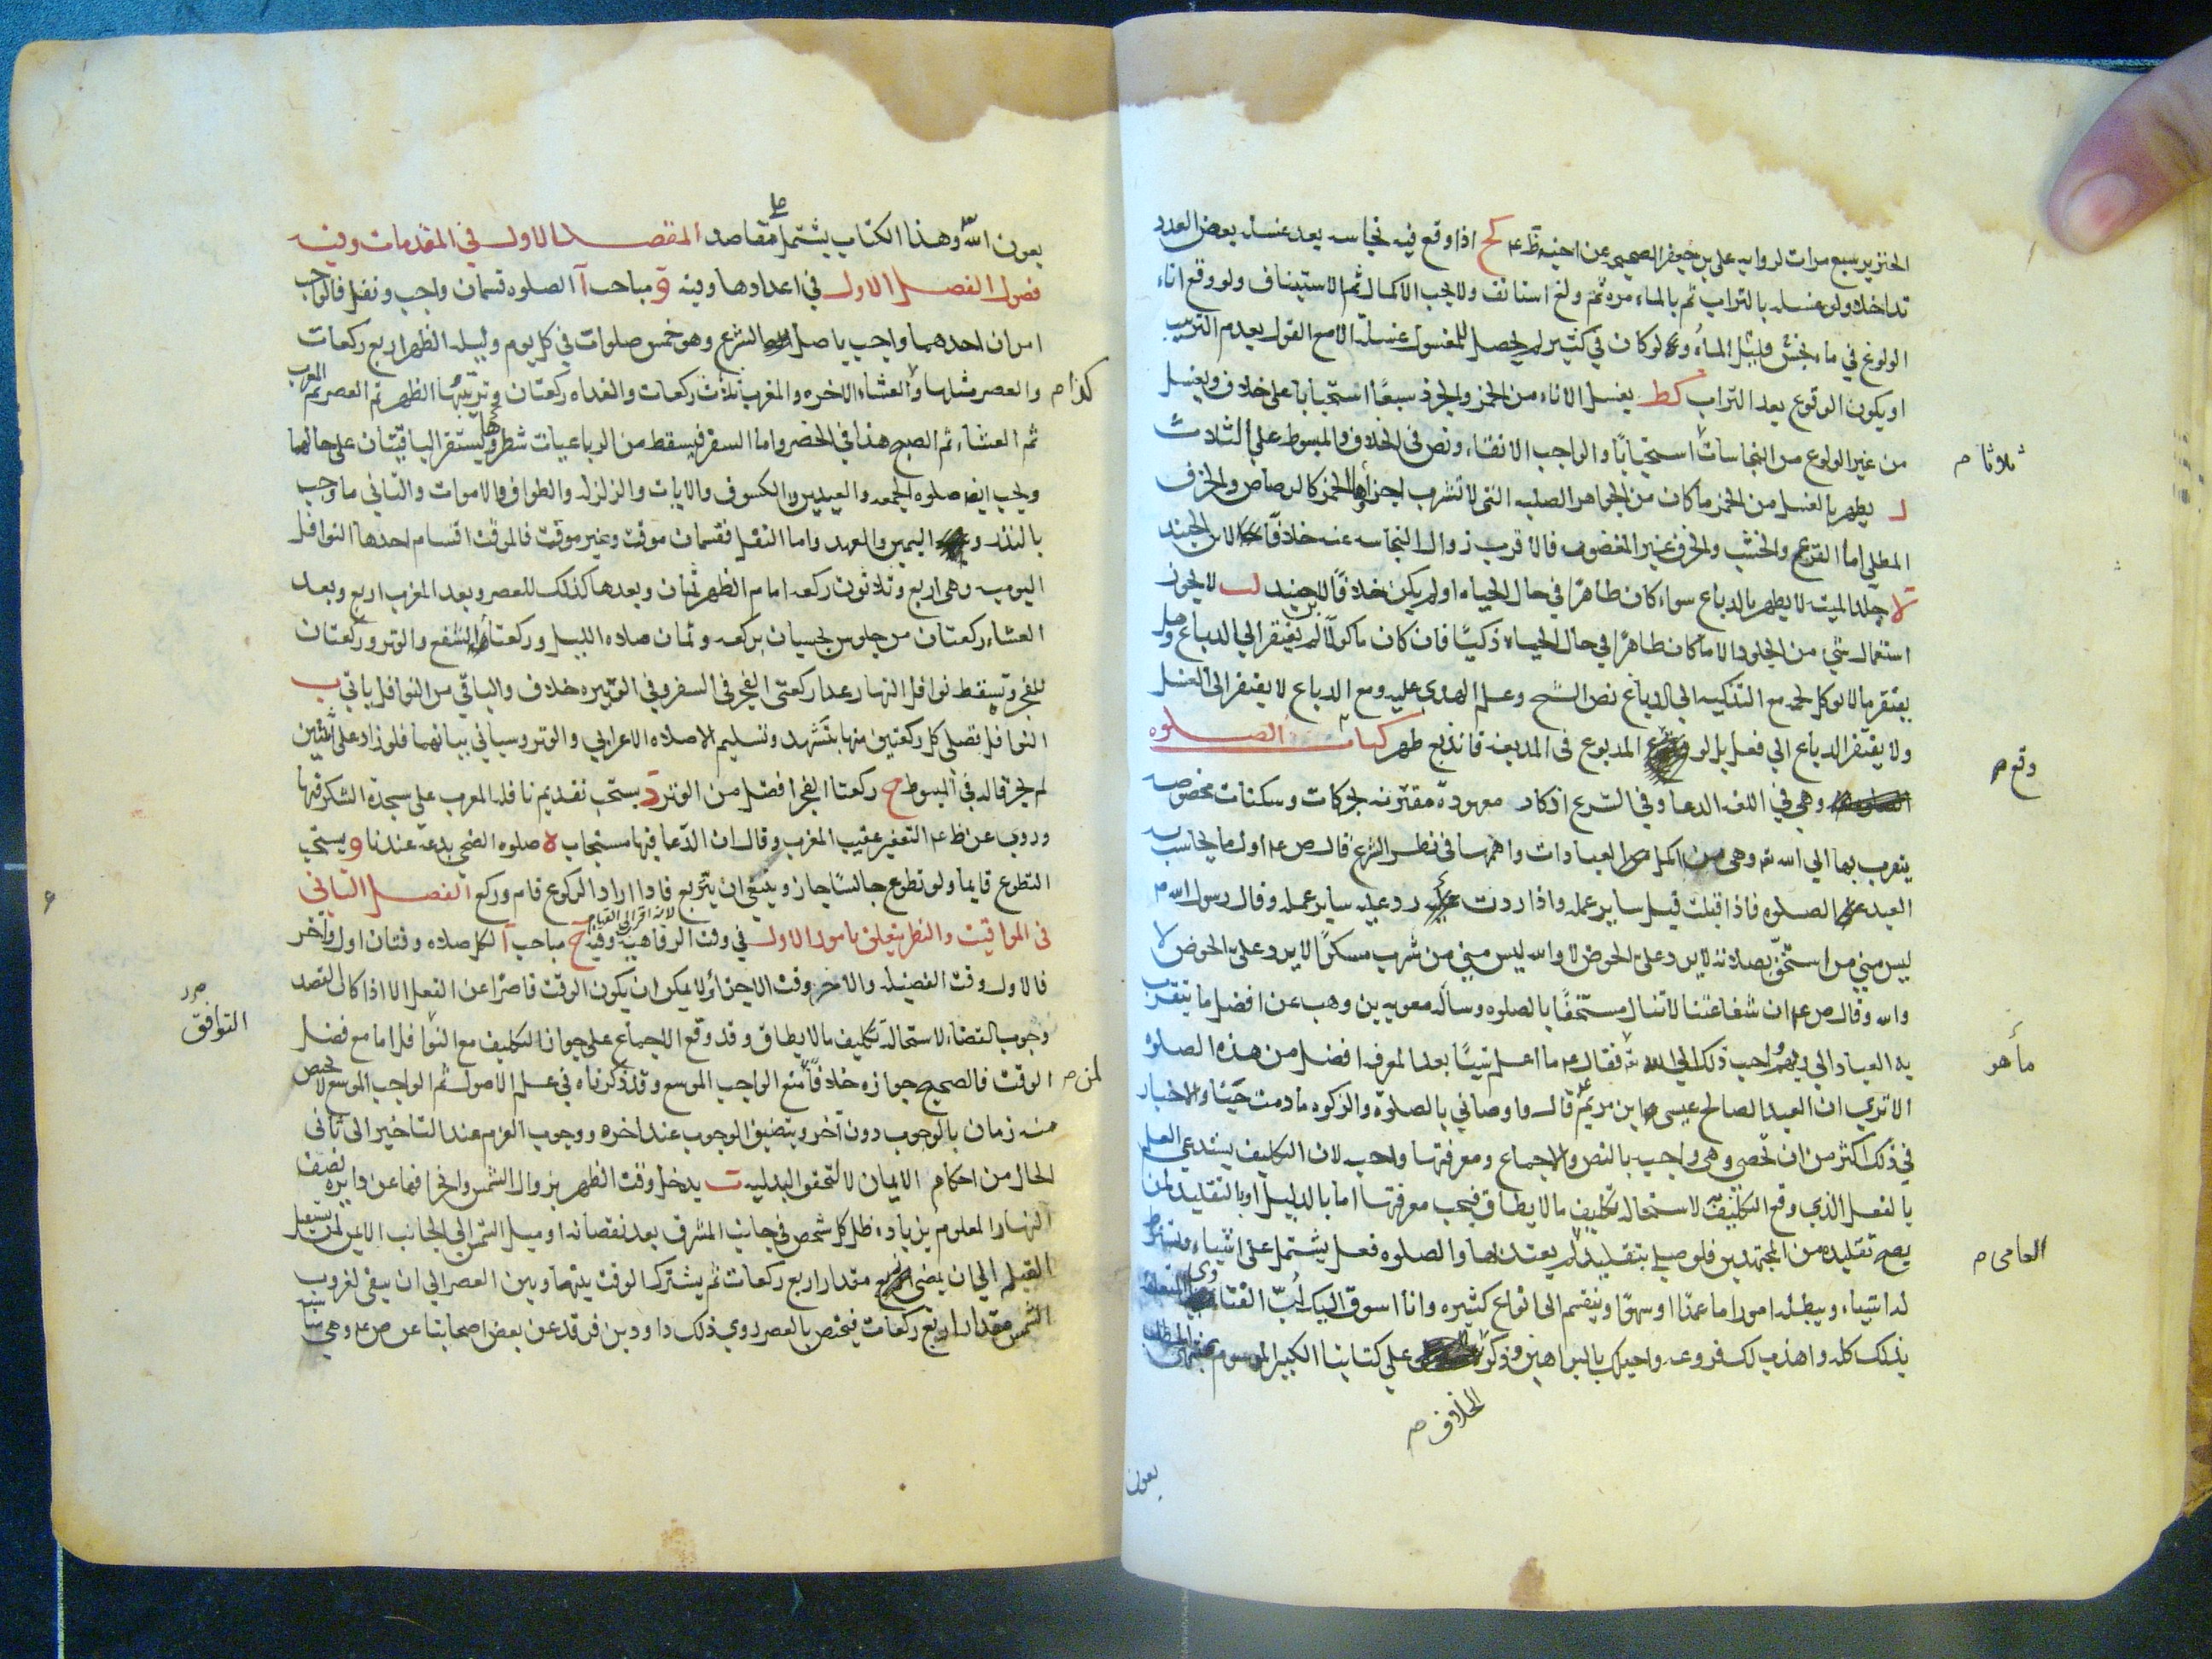 الخنزير سبع مرات لرواية على بن جعفر الصحيحه عن اخيه ظ ع كح اذا وقع فيه نجاسه بعد غسله بعض العدد
تداخلا ولو غسله بالتراب ثم بالماء مرة ثم ولغ استانف ولا يجب الاكمال ثم الاستيناف ولو وقع اناء
الولوغ في ماء نجس قليل الماء ولو كان في كثير لم يحصل للمغسول غسله الا مع القول بعدم الترتيب
او يكون الوقوع بعد التراب كط يغسل الاناء من الخمر والجرذ سبعًا استحبابا على خلاف ويغسل
من غير الولوغ من النجاسات استحبابًا والواجب الانقاء ونص في الخلاف والمبسوط على الثلاث
ثلاثا م
ل يطهر بالغسل من الخمر ما كان من الجواهر الصلبه التى لا تشرب اجزاؤها الخمر كالرصاص والخزف
المطلي اما القرع والخشب والخزف غير المغضور فالاقرب زوال النجاسه عنه خلافًا لابن الجنيد
لا جلد الميت لا يطهر بالدباغ سواء كان طاهرًا في حال الحياه او لم يكن خلافًا لابن جنيد لب لا يجوز
استعمال شي من الجلود الا ما كان طاهرًا في حال الحياه ذكيًا فان كان ماكولًا لم يفتقر الى الدباغ وهل
يفتقر ما لا يوكل لحمه مع التذكيه الى الدباغ نص الشيخ وعلم الهدى عليه ومع الدباغ لا يفتقر الى الغسل
ولا يفتقر الدباغ الى فعل بل لو وقع المدبوغ فى المدبغه فاندبغ طهر كتاب الصلوه
وقع م
وهي في اللغه الدعا وفي الشرع اذكار معهودة مقترنه بحركات وسكنات مخصوصه
يتقرب بها الى الله تع وهي من اكمل العبادات واهمها في نظر الشرع قال ص ع اول ما يحاسب به
العبد الصلوه فاذا قبلت قبل ساير عمله واذا ردت عليه رد عليه ساير عمله وقال رسول الله م
ليس مني من استخفّ بصلاته لا يرد علىّ الحوض لا والله ليس مني من شرب مسكرًا لا يرد علىّ الحوض لا
والله وقال ص ع ان شفاعتنا لا تنال مستخفًا بالصلوه وساله معويه بن وهب عن افضل ما يتقرب
به العباد الى ربهم واحب ذلك الى الله تع فقال ع ما اعلم شيئًا بعد المعرفه افضل من هذه الصلوه
ما هو
الا ترى ان العبد الصالح عيسى ابن مريم ع قال واوصاني بالصلوة والزكوه ما دمت حيًا والاخبار
في ذلك اكثر من ان تحصى وهي واجبه بالنص والاجماع ومعرفتها واجبه لان التكليف يستدعي العلم
بالفعل الذي وقع التكليف به لاستحاله تكليف ما لا يطاق فيجب معرفتها اما بالدليل او بالتقليد لمن
يصح تقليده من المجتهدين فلو صلى بتقليد لم يعتد بها والصلوه فعل يشتمل على اشياء ويشترط
العامى م
له اشياء ويبطله امور اما عمدًا او سهوًا وينقسم الى انواع كثيره وانا اسوق اليك لُبّ الفتاوى المتعلقه
بذلك كله واهذب لك فروعه واحيلك بالبراهين وذكر على كتابنا الكبير الموسوم بمنتهى المطلب
الخلاف م
بعون
بعون الله وهذا الكتاب يشتمل على مقاصد المقصد الاول في المقدمات وفيه
فصول الفصل الاول في اعدادها وفيه و مباحث آ الصلوه قسمان واجب ونفل فالواجب
امران احدهما واجب باصل الشرع وهو خمس صلوات في كل يوم وليله الظهر اربع ركعات
والعصر مثلها والعشاء الاخره والمغرب ثلاث ركعات والغداه ركعتان وترتيبها الظهر ثم العصر ثم المغرب
كذا م
ثم العشاء ثم الصبح هذا في الحضر واما السفر فيسقط من الرباعيات شطرها ويستقر الباقيتان على حالهما
ويجب ايضا صلوه الجمعه والعيدين والكسوف والايات والزلزله والطواف والاموات والثاني ما وجب
بالنذر واليمين والعهد واما النفل فقسمان موقت وغير موقت فالموقت اقسام احدها النوافل
اليوميه وهي اربع وثلاثون ركعه امام الظهر ثمان وبعدها كذلك للعصر وبعد المغرب اربع وبعد
العشاء ركعتان من جلوس تحسبان بركعه وثمان صلاه الليل وركعتا الشفع والوتر وركعتان
للفجر وتسقط نوافل النهار عدا ركعتى الفجر في السفر وفي الوتيره خلاف والباقي من النوافل ياتي ب
النوافل تصلى كل ركعتين منها بتشهد وتسليم الا صلاه الاعرابي والوتر وسياتي بيانهما فلو زاد على اثنتين
لم يجز قاله في المبسوط ج ركعتا الفجر افضل من الوتر د يستحب تقديم نافله المغرب على سجدة الشكر فيها
وروى عن ظ ع التعفير عقيب المغرب وقال ان الدعا فيها مستجاب ه صلوه الضحى بدعة عندنا و يستحب
التطوع قايما ولو تطوع جالسًا جاز وينبغي ان يتربع فاذا اراد الركوع قام وركع الفصل الثاني
لانه اقرب الى القيام
فى المواقيت والنظر يتعلق بامور الاول في وقت الرفاهية وفيه ح مباحث آ لكل صلاه وقتان اول وآخر
فالاول وقت الفضيله والآخر وقت الاجزاء ولا يمكن ان يكون الوقت قاصرًا عن الفعل الا اذا كان القصد
وجوب القضاء لاستحالة تكليف ما لا يطاق وقد وقع الاجماع على جواز التكليف مع التوافق اما مع فضل
التوافق
الوقت فالصحيح جوازه خلافًا لمن منع الواجب الموسع وقد ذكرناه في علم الاصول ثم الواجب الموسع لا يختص
لمن م
منه زمان بالوجوب دون آخر ويتضيق الوجوب عند اخره ووجوب العزم عند التاخير الى ثاني
الحال من احكام الايمان لا لتحقق البدليه ب يدخل وقت الظهر بزوال الشمس وانحرافها عن دايره نصف
النهار المعلوم بزياده ظل كل شخص في جانب المشرق بعد نقصانه او ميل الشمس الى الجانب الايمن لمن يستقبل
القبله الى ان يمضى مقدار اربع ركعات ثم يشترك الوقت بينها وبين العصر الى ان يبقى لغروب
الشمس مقدار اربع ركعات فيختص بالعصر روى ذلك داود بن فرقد عن بعض اصحابنا عن ص ع وهي